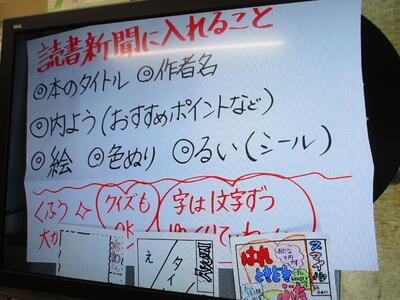 読書新聞に入れること
◎本のタイトル ◎作者名
◎内よう(おすすめポイントなど)
◎絵 ◎色ぬり ◎るい(シール)
くふう クイズも 字は1文字ずつ
OK
タイ
え
スマイル
はれ
ときどき
ぶた